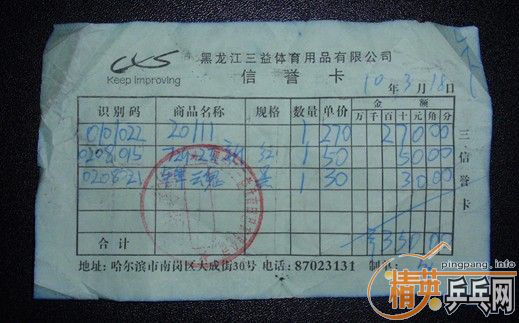 黑龙江三益体育用品有限公司
Keep improving
信誉卡
10年3月18日
识别码 商品名称 规格 数量 单价 金额
万 千 百 十 元 角 分
0101022 20111 1 270 270 00
0208015 729-2 红 1 50 50 00
0208021 1 30 30 00
三信誉卡
合计 350.00
地址:哈尔滨市南岗区大成街30号 电话:87023131 制单:
pingpang.info
精英乒乓网